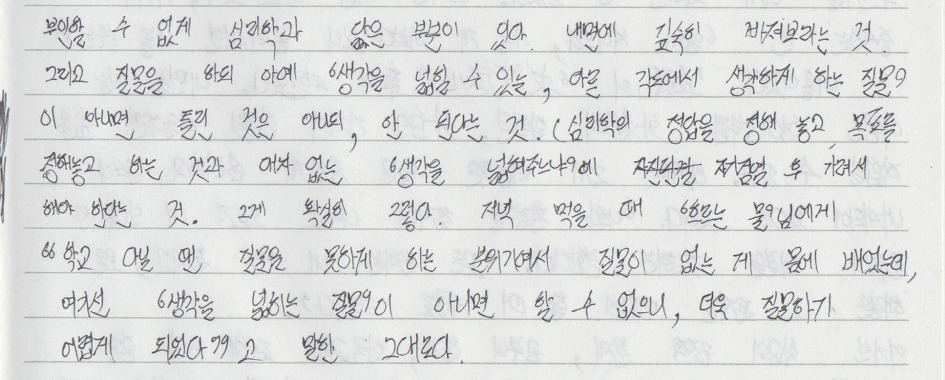 부인할 수 없게 심리학과 닮은 부분이 있다. 내면에 깊숙히 빠져보라는 것
그리고 질문을 하되 아예 '생각을 넓힐 수 있는, 다른 각도에서 생각하게 하는 질문'
이 아니면 틀린 것은 아니되, 안 된다는 것. (심리학의 정답을 정해 놓고, 목표를
정해놓고 하는 것과 여지 없는 '생각을 넓혀주느냐'에 자진판결 점검 후 가려서
해야 한다는 것. 그게 확실히 그렇다. 저녁 먹을 때 '흐르는 물'님에게
"학교 다닐 땐 질문을 못하게 하는 분위기여서 질문이 없는 게 몸에 배었는데,
여기선 '생각을 넓히는 질문'이 아니면 할 수 없으니, 더욱 질문하기
어렵게 되었다"고 말한 그대로다.